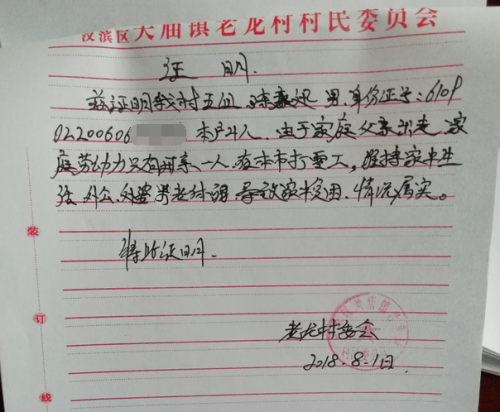 汉滨区大庙镇老龙村村民委员会
证明.
兹证明我村五组 男.身份证号:6109
02200606 本户4人.由于家庭父亲出走家
庭劳动力只有母亲一人.在本市打零工,维持家中生
活.外公.外婆 导致家中贫困.情况属实。
特此证明.
装
订
线
老龙村委会
2018.8.1日.